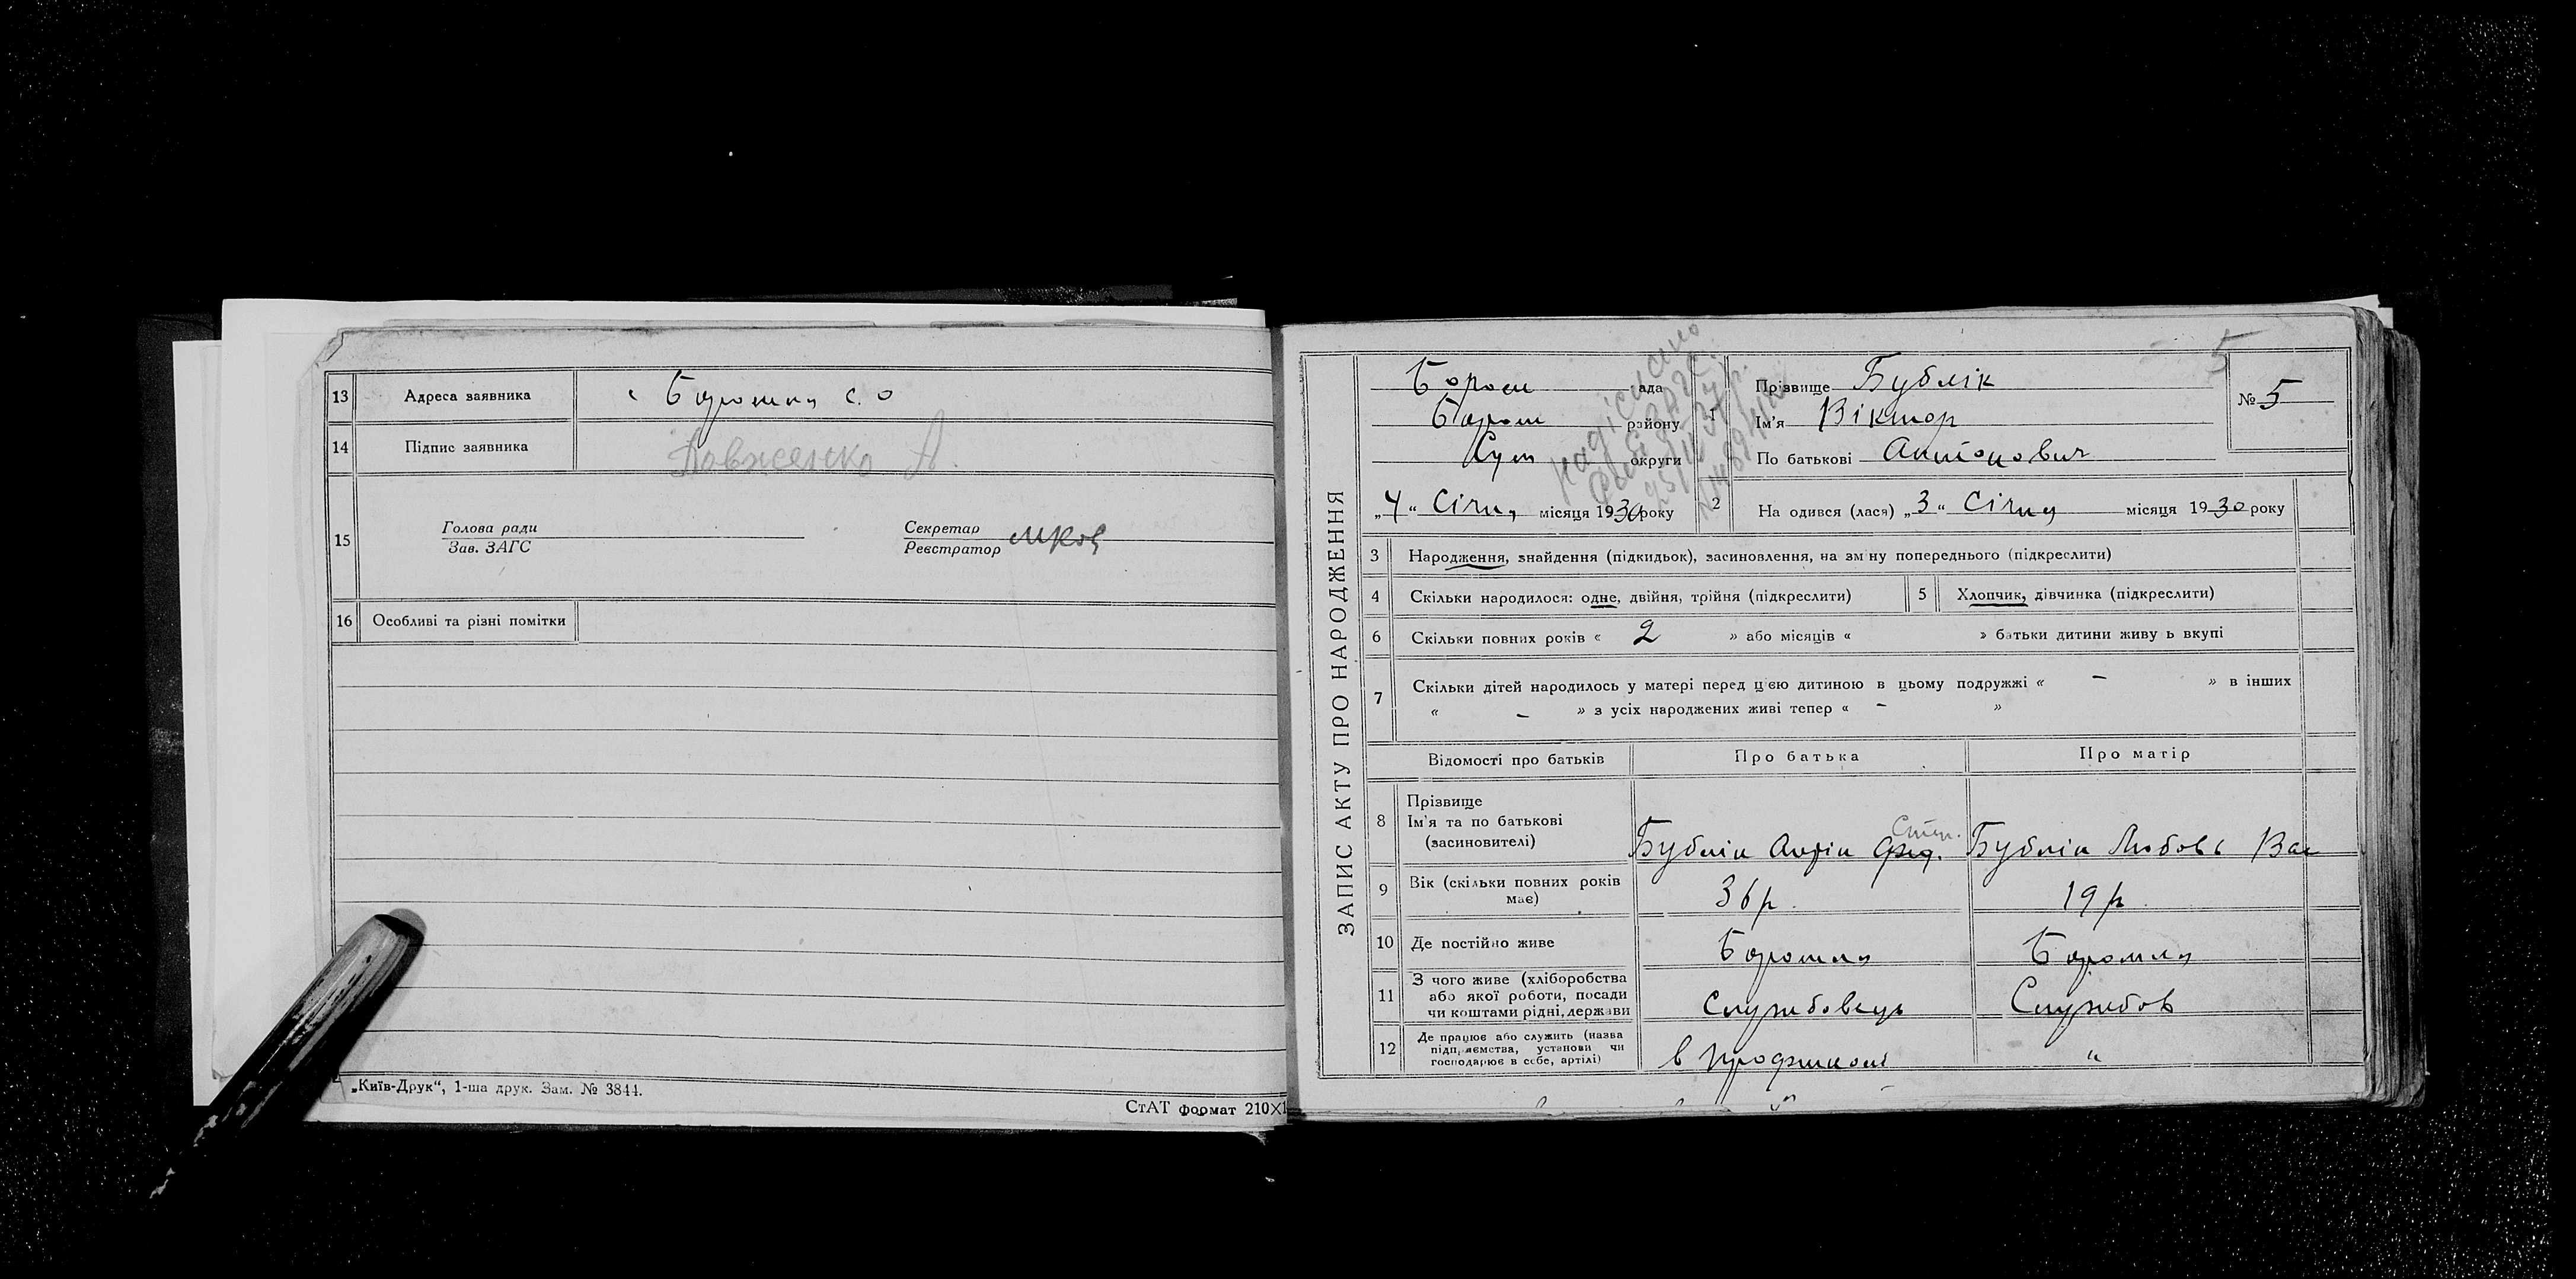 13 Адреса заявника с Боромля с. о
14 Підпис заявника Довженко А.
15 Голова ради
Зав. ЗАГС
Секретар
Реєстратор
16 Особливі та різні помітки
„Київ-Друк“, 1-ша друк. Зам. № 3844.
СтАТ формат 210×1
ЗАПИС АКТУ ПРО НАРОДЖЕННЯ
5
Бором рада
Бором району
Сум округи
„4“ Січня місяця 1930 року
надіслано
1 Прізвище Бублік
Ім'я Віктор
По батькові Антонович
№ 5
2 На одився (лася) „3“ Січня місяця 1930 року
3 Народження, знайдення (підкидьок), засиновлення, на зм ну попереднього (підкреслити)
4 Скільки народилося: одне, двійня, трійня (підкреслити)
5 Хлопчик, дівчинка (підкреслити)
6 Скільки повних років « 2 » або місяців « » батьки дитини живу ь вкупі
7 Скільки дітей народилось у матері перед цією дитиною в цьому подружжі « – » в інших
« – » з усіх народжених живі тепер « – »
Відомості про батьків Про батька Про матір
8 Прізвище
Ім'я та по батькові
(засиновителі)
Степ.
Бублік Антін Бублік Любовь Вас
9 Вік (скільки повних років має) 36 р. 19 р
10 Де постійно живе Боромля Боромля
11 З чого живе (хліборобства
або якої роботи, посади
чи коштами рідні, держави
Службовець Службов
12 Де працює або служить (назва
підприємства, установи чи
господарює в себе, артілі)
в профшколі "